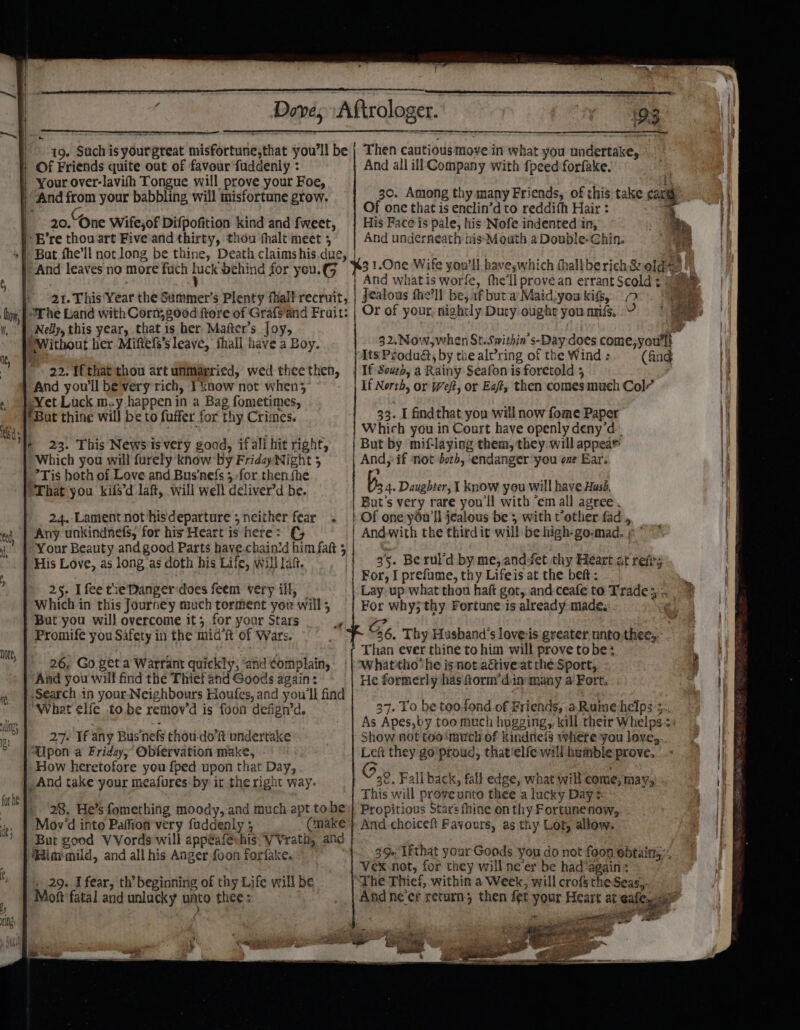 Dove, Aſtrologer.
193
19. Such is your great misfortune, that you'll be
Of Friends quite out of favour ſuddenly:
Your over-laviſh Tongue will prove your Foe,
And from your babbling will misfortune grow.
20. One Wife, of Diſpoſition kind and ſweet,
E're thou art Five and thirty, thou ſhalt meet;
But ſhe'll not long be thine, Death claims his due,
And leaves no more ſuch luck behind for you.
21. This Year the Summer's Plenty ſhall recruit,
The Land with Corn, good ſtore of Graſs and Fruit:
Nelly, this year, that is her Maſter's Joy,
Without her Miſteſs's leave, ſhall have a Boy.
22. If that thou art unmarried, wed thee then,
And you'll be very rich, I know not when;
Yet Luck may happen in a Bag ſometimes,
But thine will be to ſuffer for thy Crimes.
23. This News is very good, if all hit right,
Which you will ſurely know by Friday Night;
'Tis both of Love and Bus'neſs; for then ſhe
That you kiſs'd laſt, will well deliver'd be.
24. Lament not his departure; neither fear
Any unkindneſs, for his Heart is here:
Your Beauty and good Parts have chain'd him faſt;
His Love, as long as doth his Life, will laſt.
25. I ſee the Danger does ſeem very ill,
Which in this Journey much torment you will;
But you will overcome it; for your Stars
Promiſe you Safety in the mid'ſt of Wars.
26. Go get a Warrant quickly, and complain,
And you will find the Thief and Goods again:
Search in your Neighbours Houſes, and you'll find
What elſe to be remov'd is ſoon deſign'd.
27. If any Bus'neſs thou do'ſt undertake
Upon a Friday, Obſervation make,
How heretofore you ſped upon that Day,
And take your meaſures by it the right way.
28. He's ſomething moody, and much apt to be
Mov'd into Paſſion very ſuddenly; (make
But good VVords will appeaſe his VVrath, and
Him mild, and all his Anger ſoon forſake.
29. I fear, th' beginning of thy Life will be
Moſt fatal and unlucky unto thee:
Then cautious move in what you undertake,
And all ill Company with ſpeed forſake.
30. Among thy many Friends, of this take care
Of one that is enclin'd to reddiſh Hair:
His Face is pale, his Noſe indented in,
And underneath his Mouth a Double-Chin.
31. One Wife you'll have, which ſhall be rich & old
And what is worſe, ſhe'll prove an errant Scold:
Jealous ſhe'll be, if but a Maid you kiſs,
Or of your nightly Duty ought you miſs.
32. Now, when St. Swithin's-Day does come, you'll
Its Product, by the alt'ring of the Wind: (find
If South, a Rainy Seaſon is foretold;
If North, or Weſt, or Eaſt, then comes much Col
33. I find that you will now ſome Paper
Which you in Court have openly deny'd
But by miſ-laying them, they will appear
And, if not both, endanger you one Ear.
34. Daughter, I know you will have Husb.
But's very rare you'll with 'em all agree.
Of one you'll jealous be; with t'other ſad,
And with the third it will be high-go-mad.
35. Be rul'd by me, and ſet thy Heart at reſt;
For, I preſume, thy Life is at the beſt:
Lay up what thou haſt got, and ceaſe to Trade;
For why; thy Fortune is already made.
36. Thy Husband's love is greater unto thee,
Than ever thine to him will prove to be:
What tho' he is not active at the Sport,
He formerly has ſtorm'd in many a Fort.
37. To be too fond of Friends, a Ruine helps;
As Apes, by too much hugging, kill their Whelps:
Show not too much of kindneſs where you love,
Left they go proud, that elſe will humble prove.
38. Fall back, fall edge, what will come, may,
This will prove unto thee a lucky Day:
Propitious Stars ſhine on thy Fortune now,
And choiceſt Favours, as thy Lot, allow.
39. If that your Goods you do not ſoon obtain,
Vex not, for they will ne'er be had again:
The Thief, within a Week, will croſs the Seas,
And ne'er return; then ſet your Heart at eaſe.